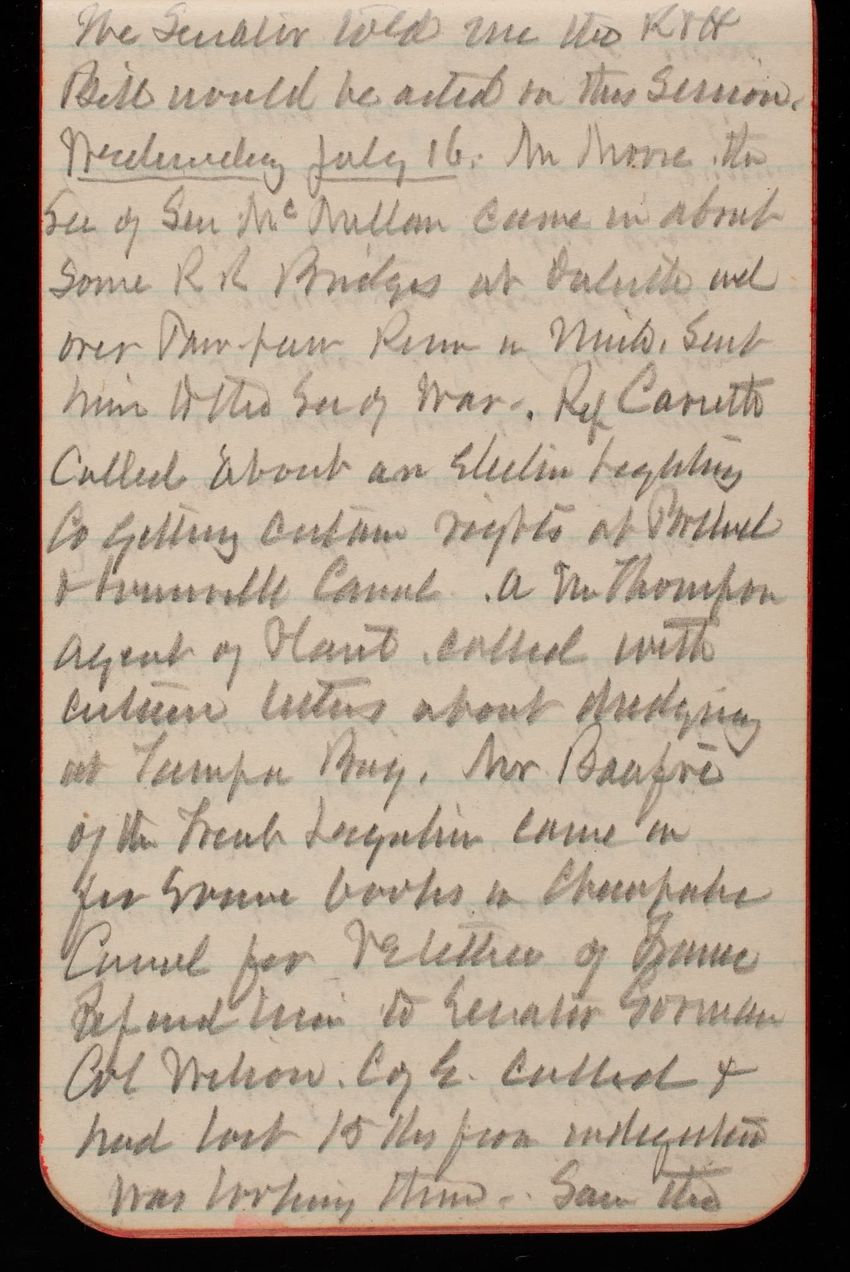 The Senator told me the R & H
Bill would be acted on this Session.
Wednesday July 16. Mr Moore the
Sec of Sen McMillan came in about
Some R R Bridges at Duluth and
over Paw-paw River in Mich. Sent
him to the Sec of War. Rep Caruth
Called about an Electric Lighting
Co getting certain rights at Portland
& Louisville Canal. A Mr Thompson
agent of Plant called with
certain letters about dredging
at Tampa Bay. Mr
of the French Legation came in
for Some books on Chesapeake
Canal for of France
Refered him to Senator Gorman
Col Wilson. C of E. called &
had lost 15 lbs from indigestion
was looking thin. Saw the